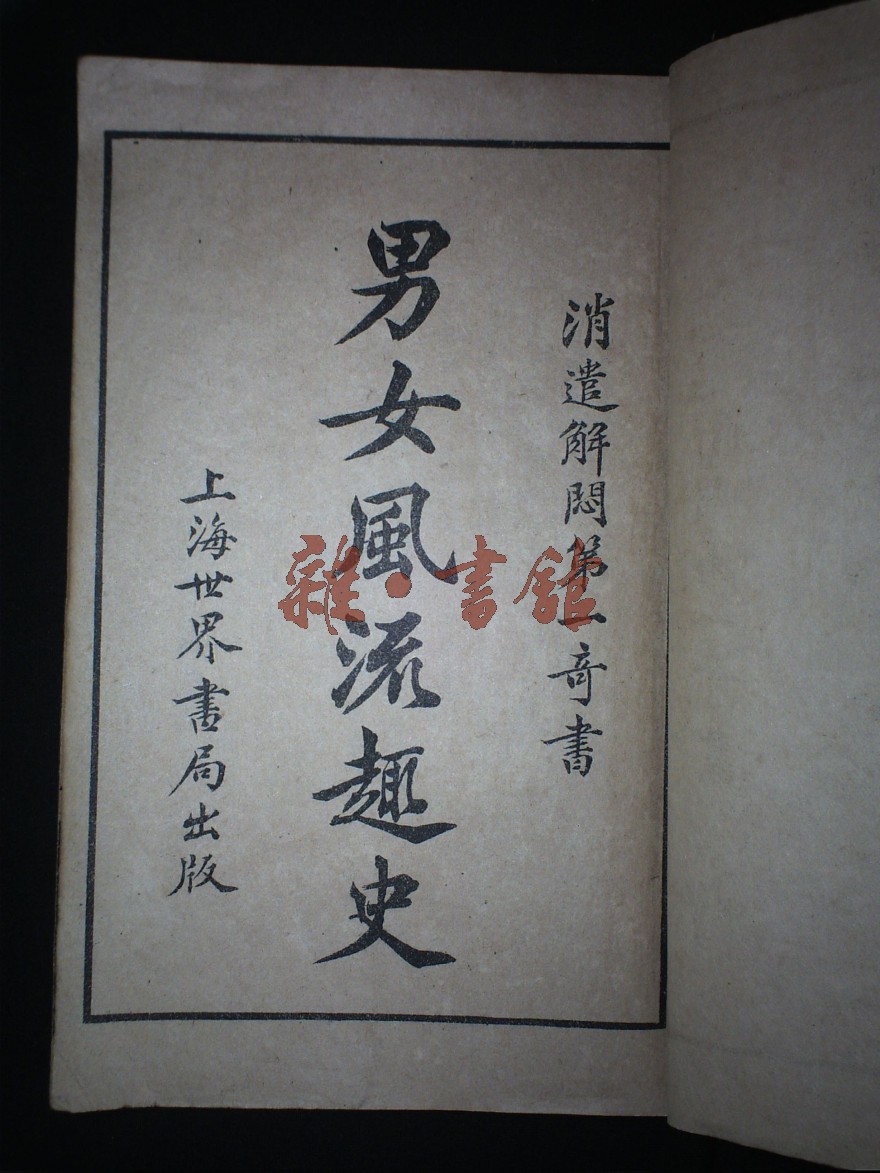 消遣解悶第一奇書
男女風流趣史
上海世界書局出版
雜·書館